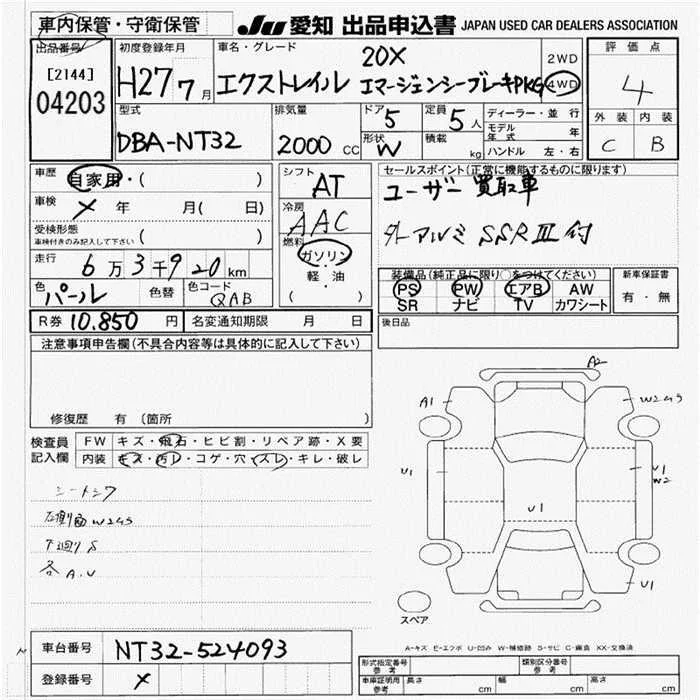 車内保管・守衛保管
JU 愛知 出品申込書 JAPAN USED CAR DEALERS ASSOCIATION
出品番号
[2144]
04203
初度登録年月
H27 7月
車名・グレード
20X
エクストレイル エマージェンシーブレーキPKG
2WD
4WD
評価点
4
外装 内装
C B
型式
DBA-NT32
排気量
2000 CC
ドア 5
形状 W
定員 5人
積載 kg
ディーラー・並行
モデル年式 年
ハンドル 左・右
車歴 自家用・( )
車検 メ 年 月( 日)
受検形態
車検付きのみ記入して下さい ( )
走行 6万3千920km
色 パール 色替
色コード QAB
シフト AT
冷房 AAC
燃料 ガソリン
軽・油
( )
セールスポイント(正常に機能するものに限ります)
ユーザー買取車
外アルミ SSRIII付
装備品(純正品に限り○をつけてください)
PS PW エアB AW
SR ナビ TV カワシート
新車保証書
有・無
R券 10.850 円 名変通知期限 月 日
後日品
注意事項申告欄(不具合内容等は具体的に記入して下さい)
修復歴 有(箇所 )
検査員記入欄
FW キズ・飛石・ヒビ割・リペア跡・X要
内装 キズ・汚レ・コゲ・穴・スレ・キレ・破レ
シートシワ
左側面W2ヨS
下廻りS
各A.U
A2
A1
W2ヨS
U1
U1
U1
W2
U1
スペア
A-キズ E-エクボ U-凹み W-補修跡 S-サビ C-腐食 XX-交換済
車台番号 NT32-524093
登録番号 メ
形式指定番号 参考
類別区分番号 参考
車庫証明用 参考 長さ cm 幅 cm 高さ cm